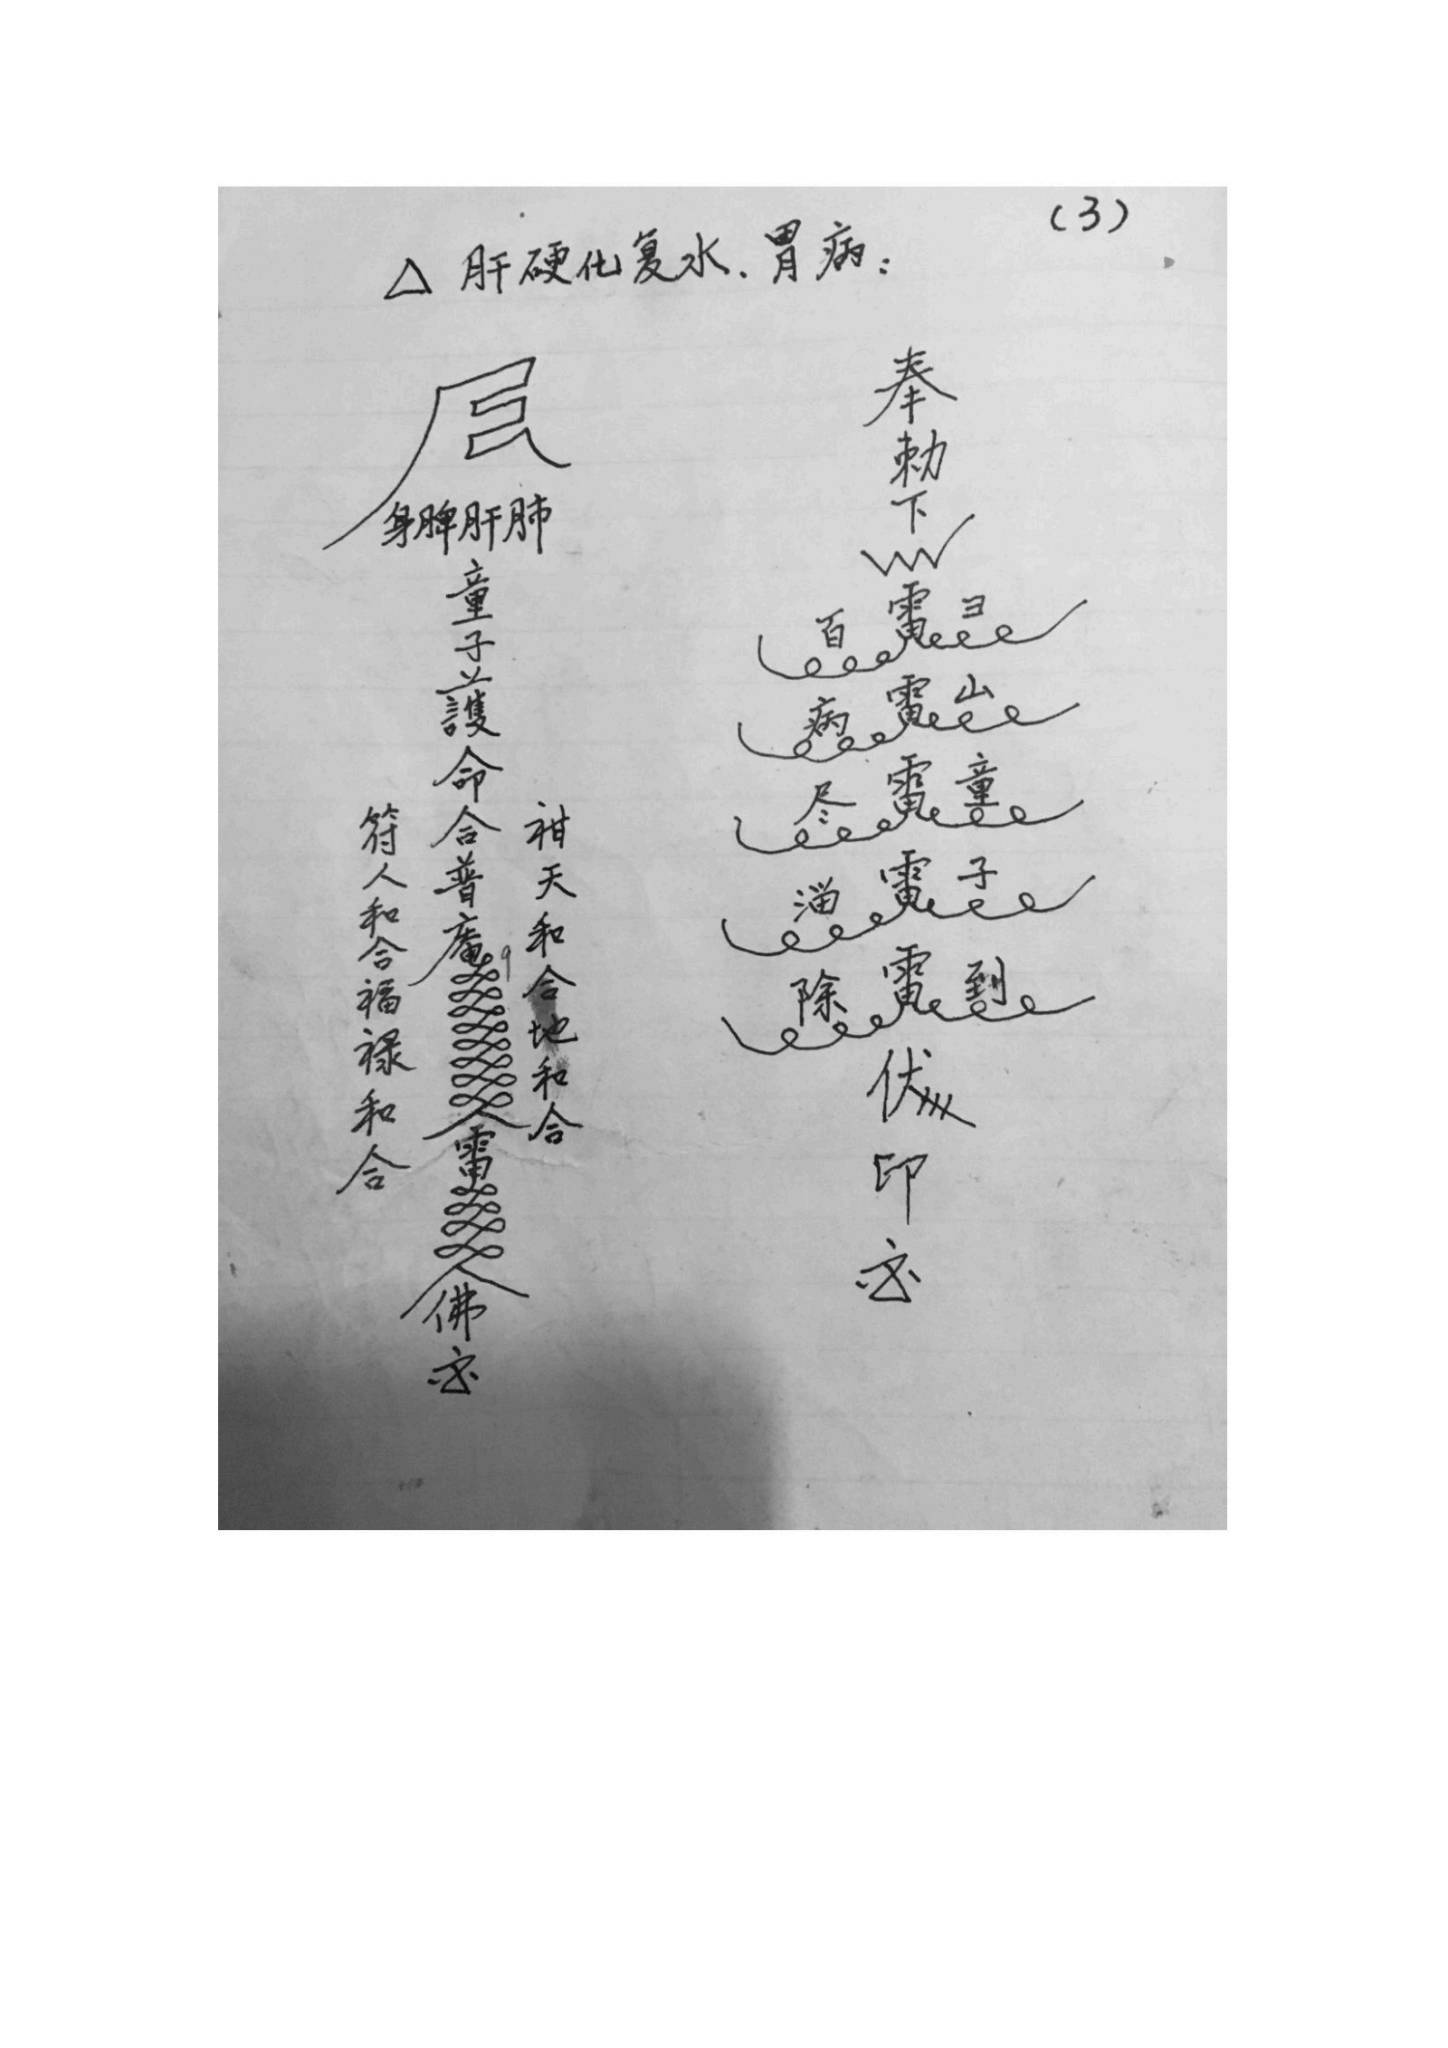 (3)
△ 肝硬化复水、胃病：
奉
勅
下
百 雷 ヨ
病 雷 山
尽 雷 童
雷 子
除 雷 到
伏
印
身脾肝肺
童子護命合普庵
雷
佛
天和合地和合
符人和合福禄和合